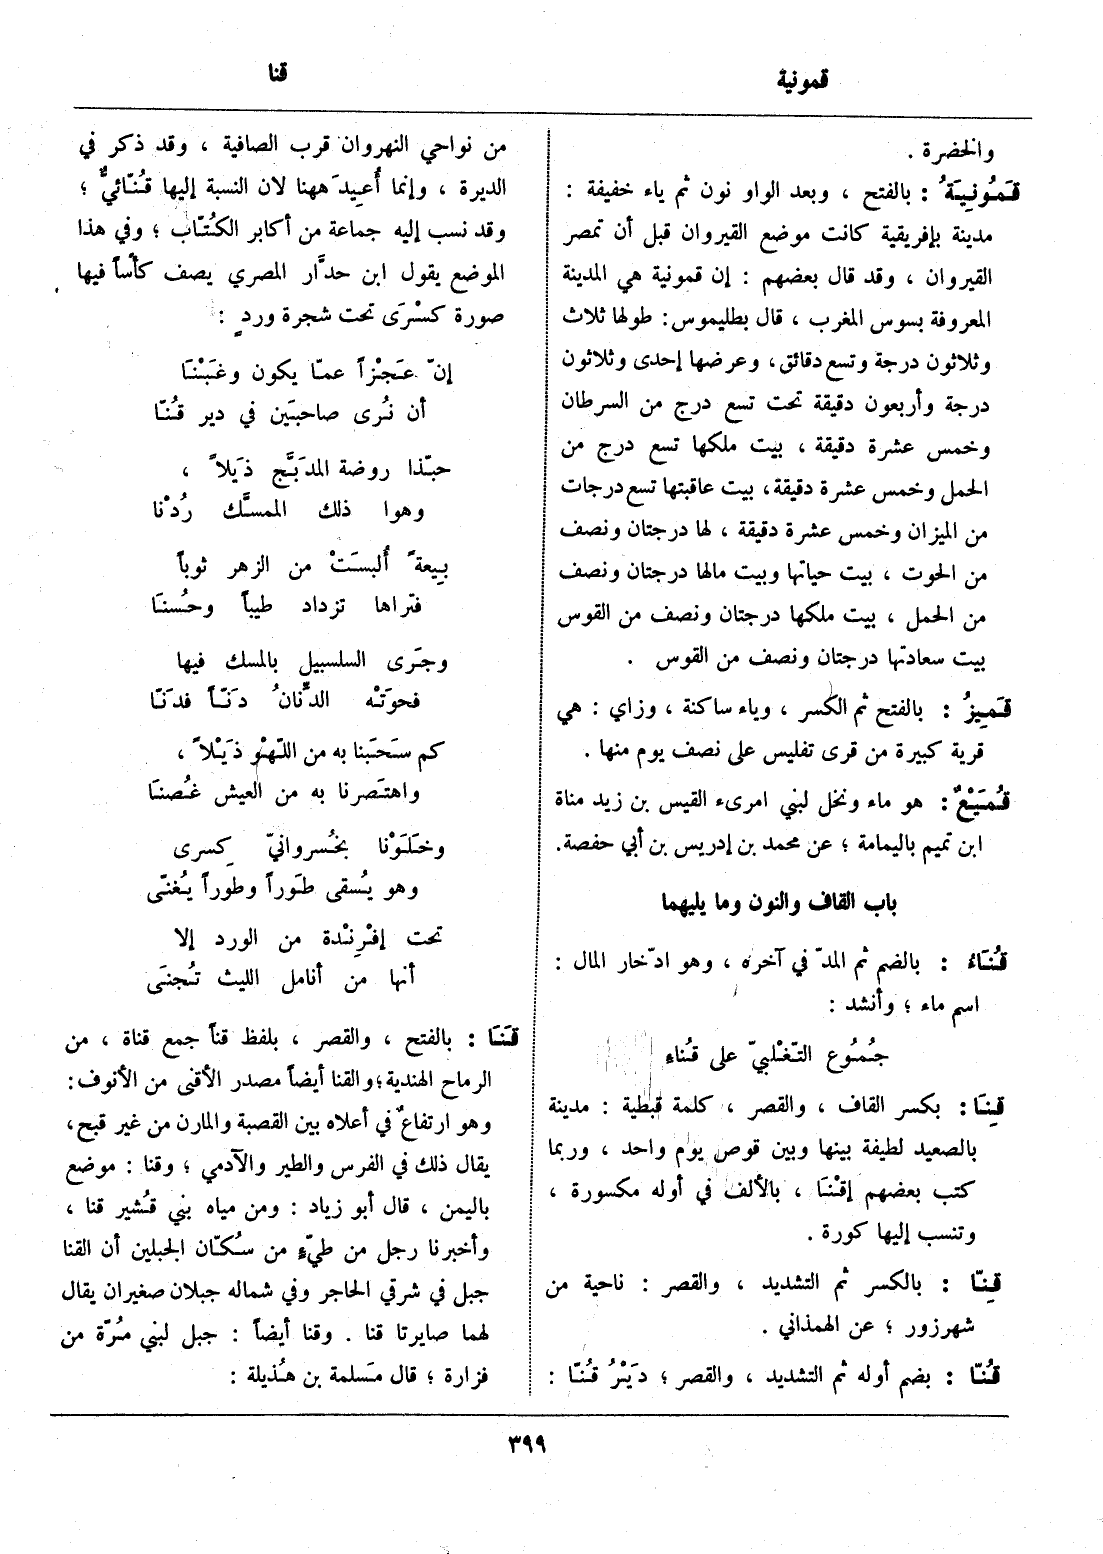 قمونية
قنا
والخضرة .
قَمُونِيَةُ : بالفتح ، وبعد الواو نون ثم ياء خفيفة :
مدينة بإفريقية كانت موضع القيروان قبل أن تمصر
القيروان ، وقد قال بعضهم : إن قمونية هي المدينة
المعروفة بسوس المغرب ، قال بطليموس : طولها ثلاث
وثلاثون درجة وتسع دقائق، وعرضها إحدى وثلاثون
درجة وأربعون دقيقة تحت تسع درج من السرطان
وخمس عشرة دقيقة ، بيت ملكها تسع درج من
الحمل وخمس عشرة دقيقة، بيت عاقبتها تسع درجات
من الميزان وخمس عشرة دقيقة ، لها درجتان ونصف
من الحوت ، بيت حياتها وبيت مالها درجتان ونصف
من الحمل ، بيت ملكها درجتان ونصف من القوس
بيت سعادتها درجتان ونصف من القوس .
قَمِيزُ : بالفتح ثم الكسر ، وياء ساكنة ، وزاي : هي
قرية كبيرة من قرى تفليس على نصف يوم منها .
قُمَيْعٌ : هو ماء ونخل لبني امرىء القيس بن زيد مناة
ابن تميم باليمامة ؛ عن محمد بن إدريس بن أبي حفصة.
باب القاف والنون وما يليهما
قُنَاءُ : بالضم ثم المدّ في آخره ، وهو ادّخار المال :
اسم ماء ؛ وأنشد :
جُمُوع التّغْلبيّ على قُناء
قِنَا : بكسر القاف ، والقصر ، كلمة قبطية : مدينة
بالصعيد لطيفة بينها وبين قوص يوم واحد ، وربما
كتب بعضهم إقْنَا ، بالألف في أوله مكسورة ،
وتنسب إليها كورة .
قِنّا : بالكسر ثم التشديد ، والقصر : ناحية من
شهرزور ؛ عن الهمذاني .
قُنّا : بضم أوله ثم التشديد ، والقصر ؛ دَيْرُ قُنّا :
من نواحي النهروان قرب الصافية ، وقد ذكر في
الديرة ، وإنما أُعيدَ ههنا لان النسبة إليها قُنّائيٌّ ؛
وقد نسب إليه جماعة من أكابر الكُتّاب ؛ وفي هذا
الموضع يقول ابن حدَّار المصري يصف كأساً فيها
صورة كسْرَى تحت شجرة وردٍ :
إنّ عَجْزاً عمّا يكون وغَبْنَا
أن نُرى صاحبَين في دير قُنّا
حبّذا روضة المدَبَّج ذَيلاً ،
وهوا ذلك الممسَّك رُدْنا
بِيعةً أُلبسَتْ من الزهر ثوباً
فتراها تزداد طيباً وحُسنَا
وجَرى السلسبيل بالمسك فيها
فحوَتْه الدِّنانُ دَنّاً فدَنّا
كم سَحَبنا به من اللّهْو ذَيْلاً ،
واهتَصرنا به من العيش غُصنَا
وخَلَوْنا بخُسروانيّ كِسرى
وهو يُسقى طَوراً وطوراً يُغنّى
تحت إفْرِنْدة من الورد إلا
أنها من أنامل الليث تُجنَى
قَنَا : بالفتح ، والقصر ، بلفظ قناً جمع قناة ، من
الرماح الهندية ؛ والقنا أيضاً مصدر الأقنى من الأنوف :
وهو ارتفاعٌ في أعلاه بين القصبة والمارن من غير قبح،
يقال ذلك في الفرس والطير والآدمي ؛ وقنا : موضع
باليمن ، قال أبو زياد : ومن مياه بني قُشير قنا ،
وأخبرنا رجل من طيّءٍ من سُكّان الجبلين أن القنا
جبل في شرقي الحاجر وفي شماله جبلان صغيران يقال
لهما صايرتا قنا . وقنا أيضاً : جبل لبني مُرّة من
فزارة ؛ قال مَسلمة بن هُذيلة :
٣٩٩